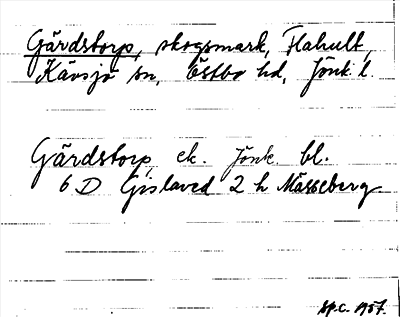 Gärdstorp, skogsmark, Flahult,
Kävsjö sn, Östbo hd, Jönk. l.
Gärdstorp, ek. Jönk. bl.
6 D Gislaved 2 h Måsseberg
Sp.c. 1957.